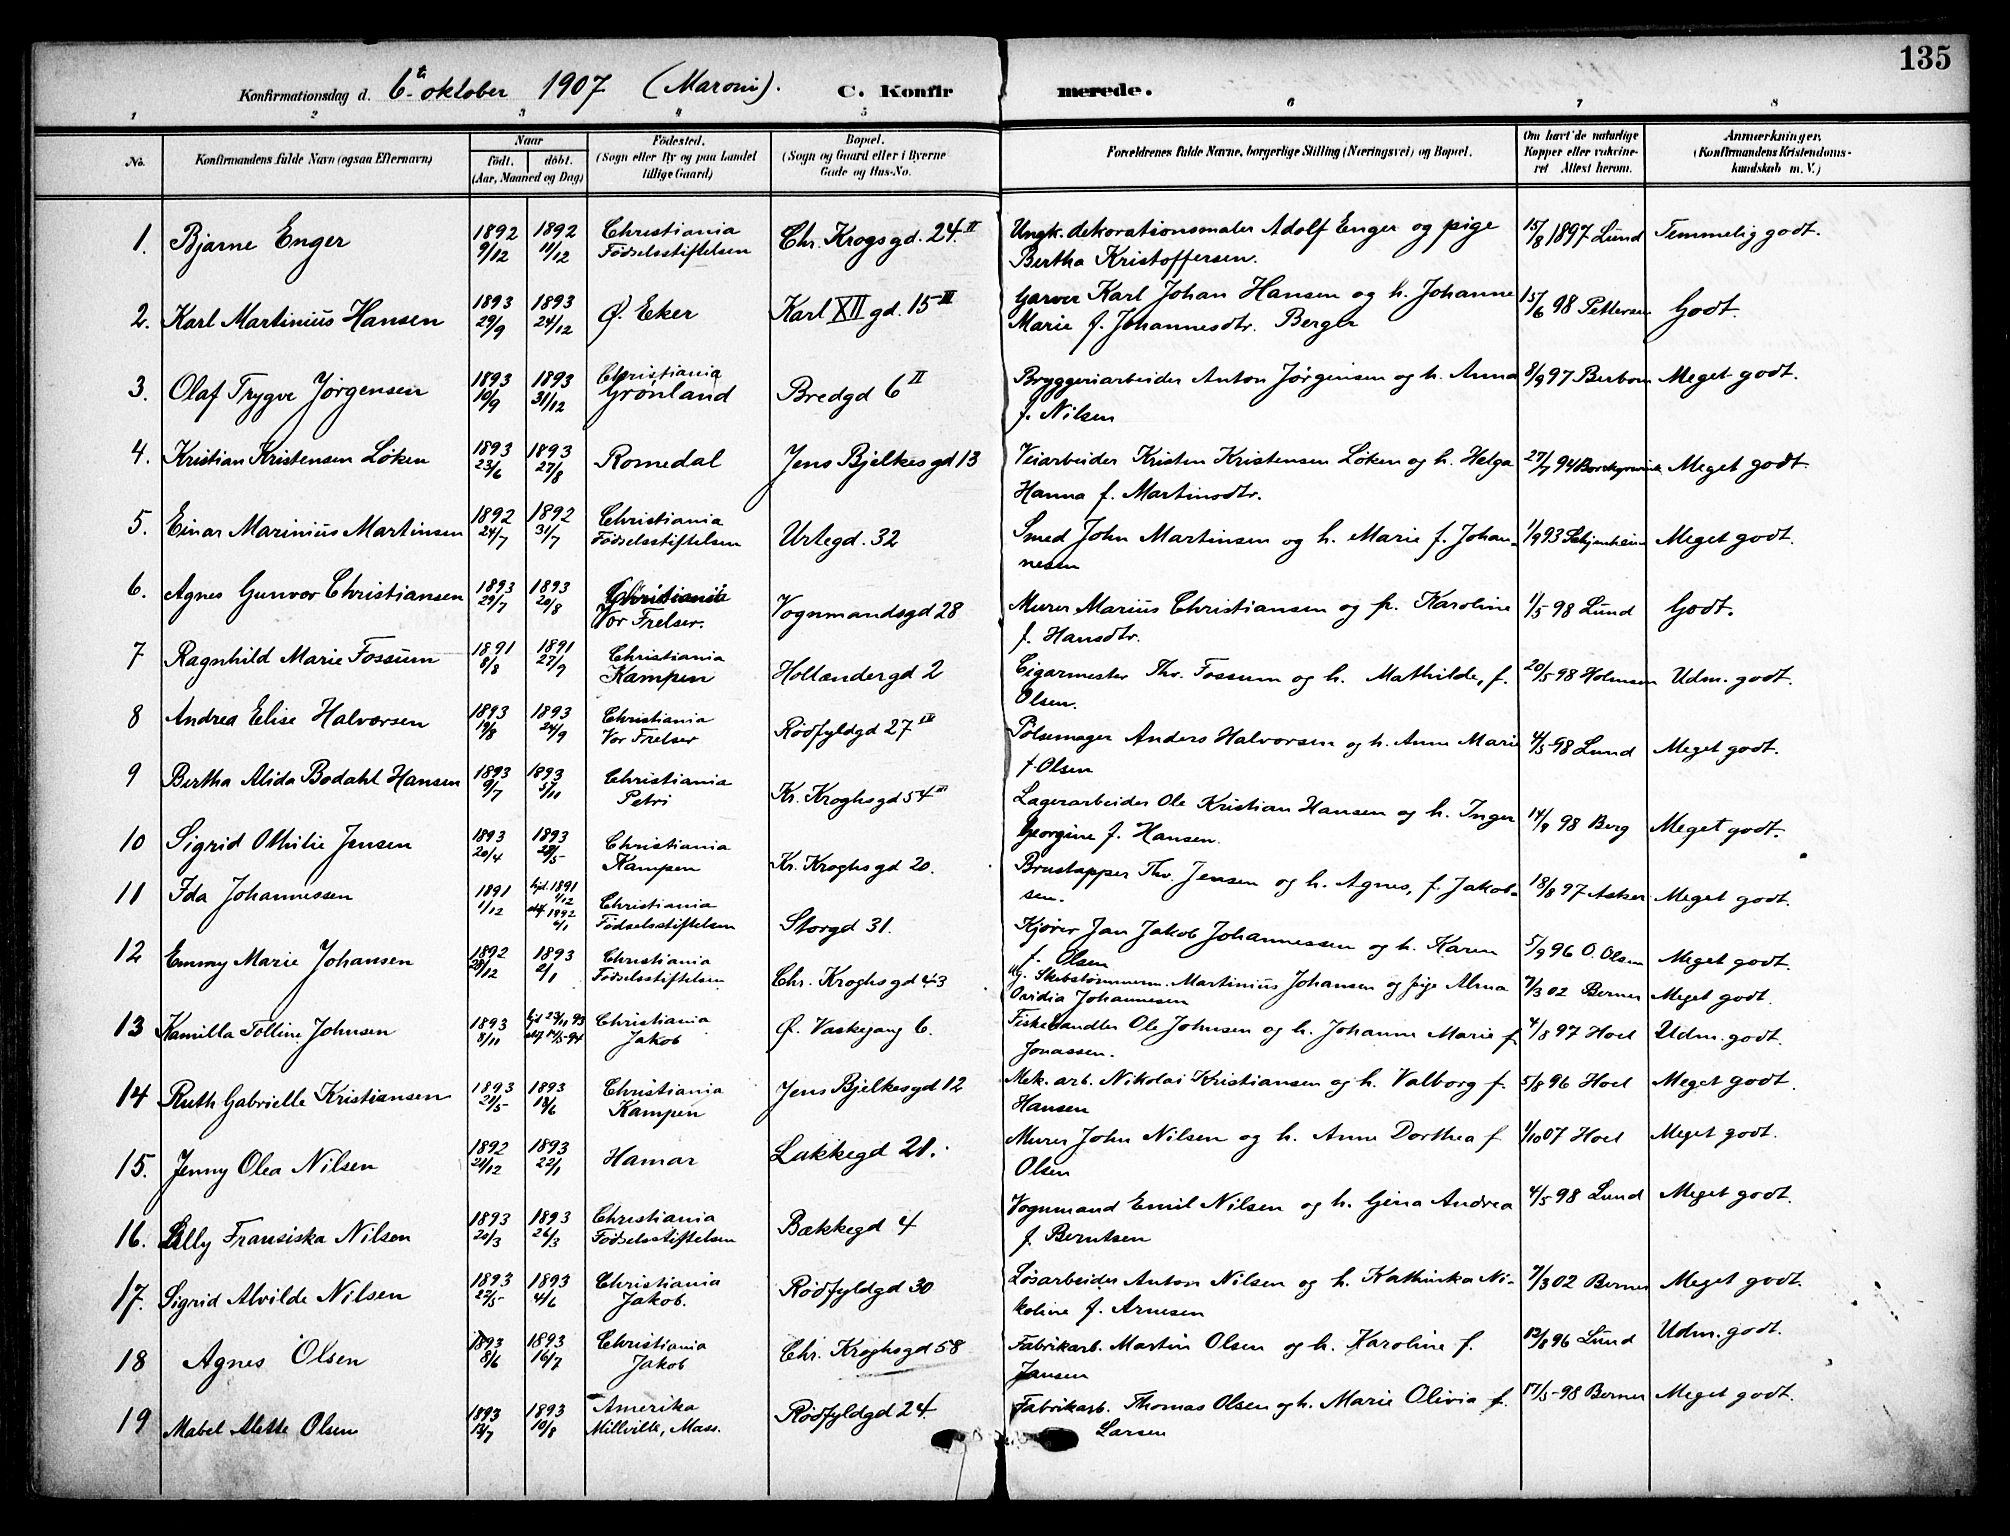 135
Konfirmationsdag d. 6te oktober 1907 (Maroni). C. Konfirmerede.
1 2 3 4 5 6 7 8
No. Konfirmandens fulde Navn (ogsaa Efternavn) Naar født. døbt. (Aar, Maaned og Dag) Fødested. (Sogn eller By og paa Landet tillige Gaard) Bopæl. (Sogn og Gaard eller i Byerne Gade og Hus-No. Forældrenes fulde Navne, borgerlige Stilling (Næringsvei) og Bopæl. Om havt de naturlige Kopper eller vakcineret Attest herom. Anmærkninger. (Konfirmandens Kristendomskundskab m. V.)
1. Bjarne Enger 1892 9/12 1892 11/12 Christiania Fødselsstiftelsen Chr. Krogsgd. 24 II Ungk. dekorationsmaler Adolf Enger og pige Bertha Kristoffersen. 15/8 1897 Lund Temmelig godt.
2. Karl Martinius Hansen 1893 29/9 1893 24/12 Ø. Eker Karl XII gd. 15 II Garver Karl Johan Hansen og h. Johanne Marie f. Johannesdtr. Berger 15/6 98 Pettersen Godt.
3. Olaf Trygve Jørgensen 1893 10/9 1893 31/12 Christiania Grønland Bredgd 6 II Bryggeriarbeider Anton Jørgensen og h. Anna f. Nilsen 8/9 97 Meget godt.
4. Kristian Kristensen Løken 1893 23/6 1893 27/8 Romedal Jens Bjelkesgd 13 Veiarbeider Kristen Kristensen Løken og h. Helga Hanna f. Martinsdtr. 27/7 94 Meget godt.
5. Einar Marinius Martinsen 1892 24/7 1892 31/7 Christiania Fødselsstiftelsen Urtegd. 32 Smed John Martinsen og h. Marie f. Johannesen 1/9 93 Meget godt.
6. Agnes Gunvor Christiansen 1893 29/7 1893 20/8 Christiania Vor Frelser. Vognmandsgd 28 Murer Marius Christiansen og h. Karoline f. Hansdtr. 1/5 98 Lund Godt.
7 Ragnhild Marie Fossum 1891 8/8 1891 27/9 Christiania Kampen Hollændergd 2 Cigarmester Thv. Fossum og h. Mathilde, f. Olsen. 20/5 98 Holmsen Udm. godt.
8 Andrea Elise Halvorsen 1893 19/8 1893 24/9 Christiania Vor Frelser Rødfyldgd 27 III Pølsemager Anders Halvorsen og h. Anne Marie f. Olsen 4/5 98 Lund Meget godt.
9 Bertha Alida Bodahl Hansen 1893 9/7 1893 5/11 Christiania Petri Kr. Kroghsgd 54 III Lagerarbeider Ole Kristian Hansen og h. Inger Georgine f. Hansen. 14/9 98 Berg Meget godt.
10 Sigrid Othilie Jensen 1893 20/4 1893 28/5 Christiania Kampen Kr. Kroghsgd 20. Brustapper Thv. Jensen og h. Agnes, f. Jakobsen. 18/8 97 Asker Meget godt.
11 Ida Johannessen 1891 1/12 hjd. 1891 1/12 stf. 1892 6/1 Christiania Fødselsstiftelsen Storgd 31. Kjører Jan Jakob Johannessen og h. Karen f. Olsen 5/9 96 O. Olsen Meget godt.
12 Emmy Marie Johansen 1892 28/12 1893 2/1 Christiania Fødselsstiftelsen Chr. Kroghsgd 43 Ug. Skibstømmerm. Martinius Johansen og pige Alma Ovidia Johannesen 7/3 02 Berner Meget godt.
13 Kamilla Tolline Johnsen 1893 8/11 hjd 23/11 93 stf 14/5-94 Christiania Jakob Ø. Vaskegang 6. Fiskehandler Ole Johnsen og h. Johanne Marie f. Jonassen. 4/8 97 Hoel Udm. godt.
14 Ruth Gabrielle Kristiansen 1893 21/5 1893 18/6 Christiania Kampen Jens Bjelkesgd 12 Mek. arb. Nikolai Kristiansen og h. Valborg f. Hansen 5/8 96 Hoel Meget godt.
15. Jenny Olea Nilsen 1892 24/12 1893 22/1 Hamar Lakkegd 21. Murer John Nilsen og h. Anne Dorthea f. Olsen 1/10 07 Hoel Meget godt.
16. Lilly Fransiska Nilsen 1893 20/3 1893 26/3 Christiania Fødselsstiftelsen Bakkegd 4 Vognmand Emil Nilsen og h. Gina Andrea f. Berntsen 4/5 98 Lund Meget godt.
17. Sigrid Alvilde Nilsen 1893 22/5 1893 4/6 Christiania Jakob. Rødfyldgd 30 Løsarbeider Anton Nilsen og h. Kathinka Nikoline f. Arnesen 7/3 02 Berner Meget godt.
18 Agnes Olsen 1893 8/6 1893 16/7 Christiania Jakob Chr. Kroghsgd 58 Fabrikarb. Martin Olsen og h. Karoline f. Jansen 12/8 96 Lund Udm. godt.
19 Mabel Alette Olsen 1893 13/7 1893 10/8 Amerika Millville, Mass. Rødfyldgd 24. Fabrikarb. Thomas Olsen og h. Marie Olivia f. Larsen 17/5-98 Berner Meget godt.